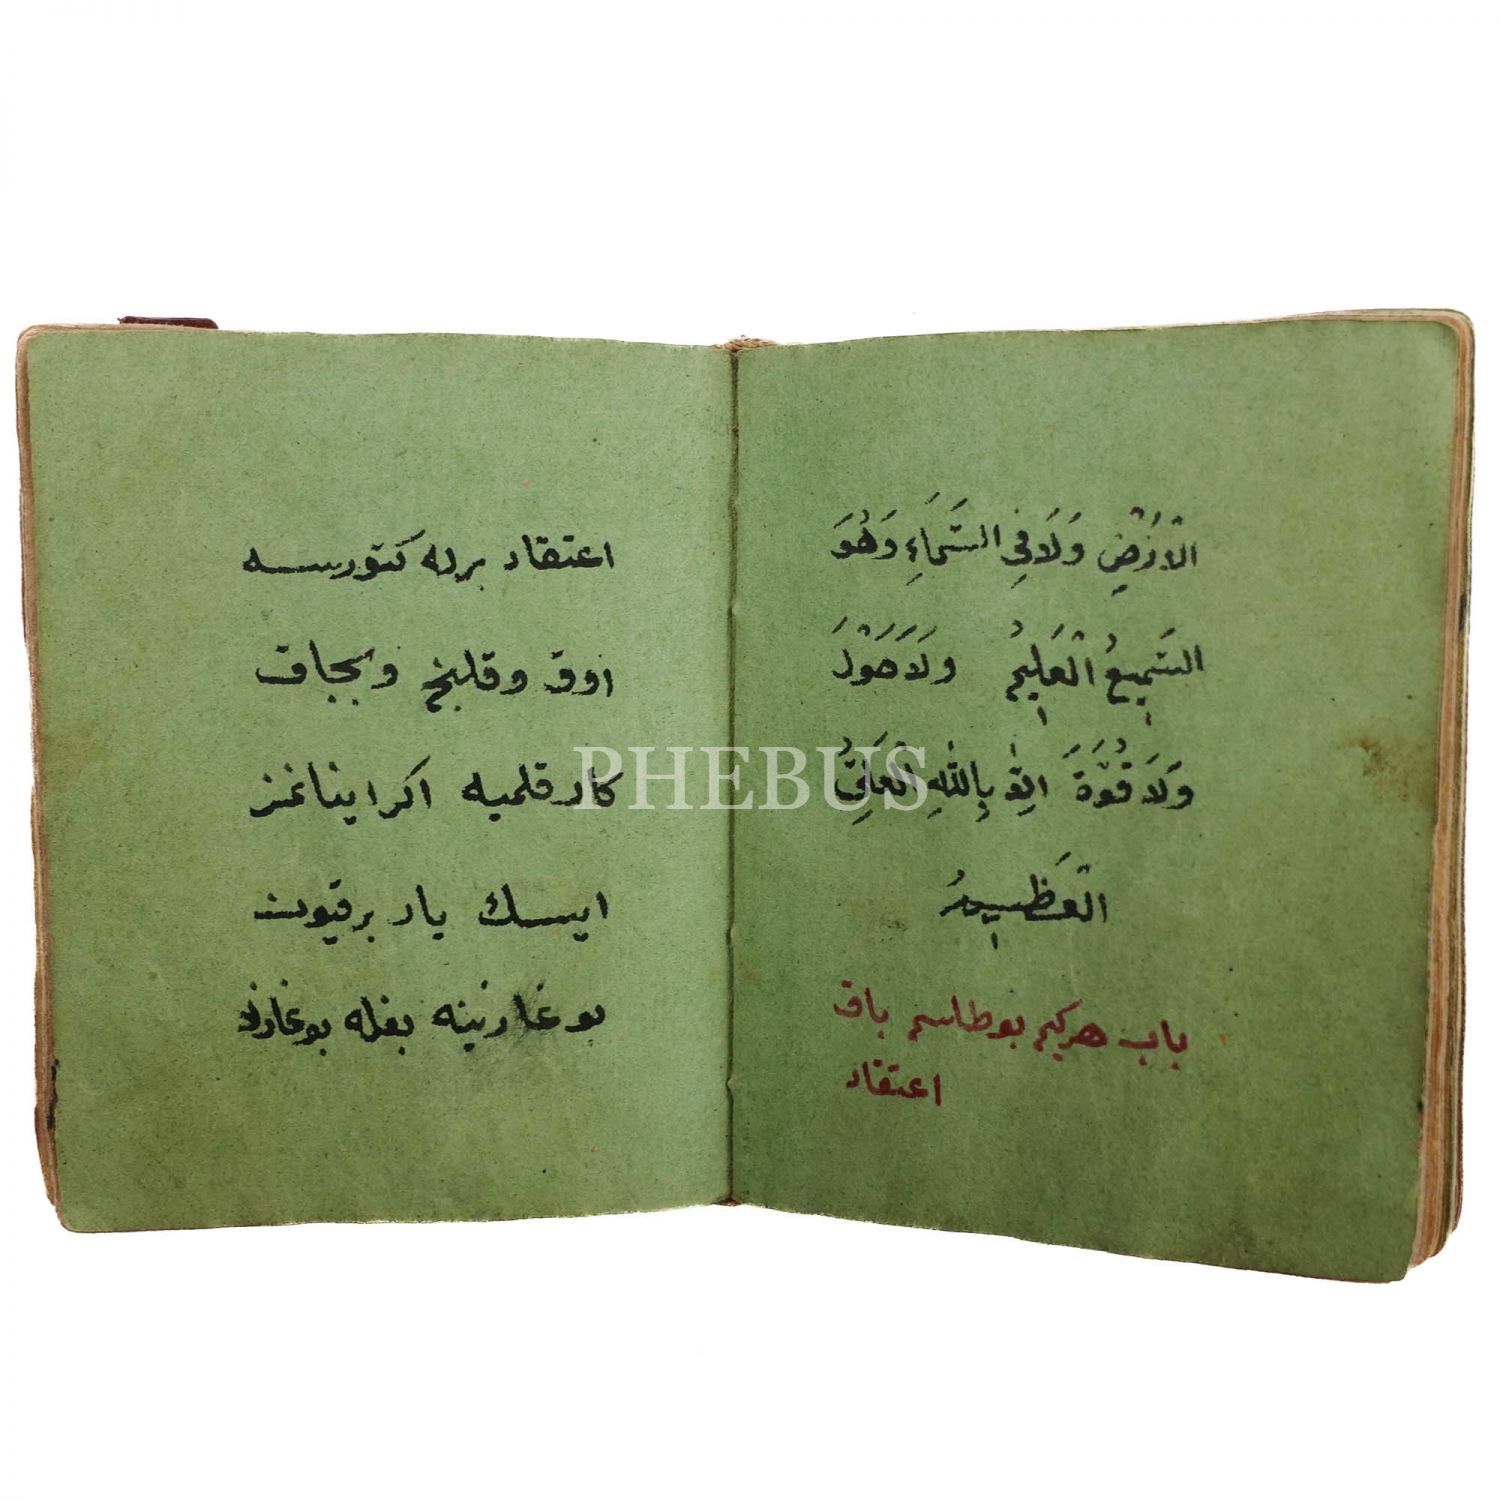 الْاَرْضِ وَلَا فِى السَّمَاءِ وَهُوَ
السَّمِيعُ الْعَلِيمُ وَلَا حَوْلَ
وَلَا قُوَّةَ اِلَّا بِاللّٰهِ الْعَلِىُّ
الْعَظِيمُ
باب هركيم بو طلسم پاق
اعتقاد
اعتقاد برله كتورسه
اوق وقلنج وبجاق
كار قلميه اكر اينانمز
ايسك يازبرقيون
بوغازينه بغله بوغازلا
PHEBUS